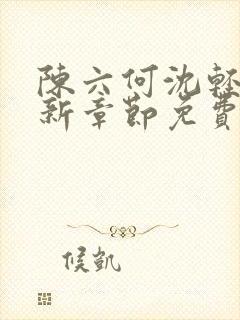 陳六何沈輕
新章節免費
候凱